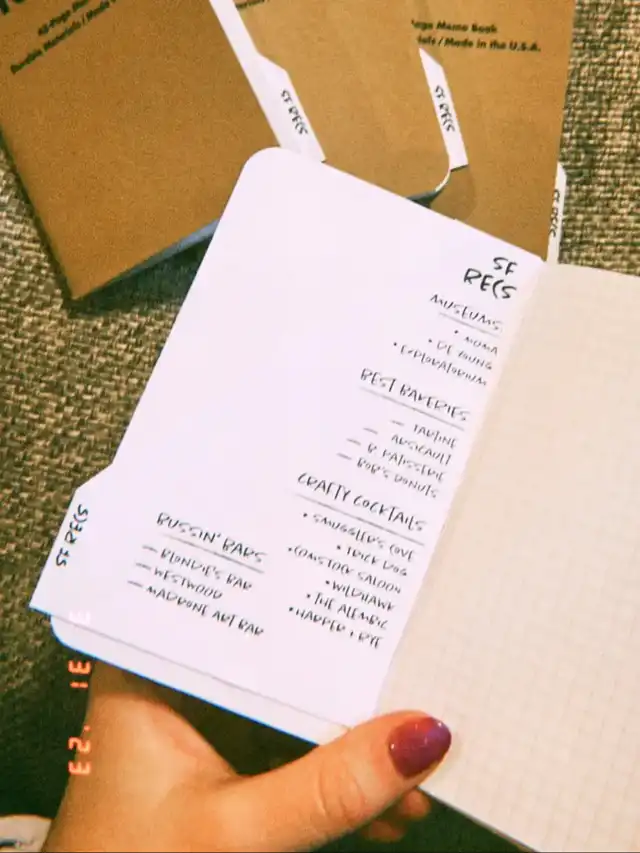 48-Page Memo
Durable Materials / Made
Page Memo Book
ials / Made in the U.S.A.
SF RECS
SF RECS
SF RECS
SF
RECS
MUSEUMS
• MOMA
• DE YOUNG
• EXPLORATORIUM
BEST BAKERIES
— TARTINE
— ARSICAULT
— B. PATISSERIE
— BOB'S DONUTS
CRAFTY COCKTAILS
• SMUGGLER'S COVE
• TRICK DOG
• COMSTOCK SALOON
• WILDHAWK
• THE ALEMBIC
• HARPER + RYE
BUSSIN' BARS
— BLONDIE'S BAR
— WESTWOOD
— MADRONE ART BAR
SF RECS
3 31 '23